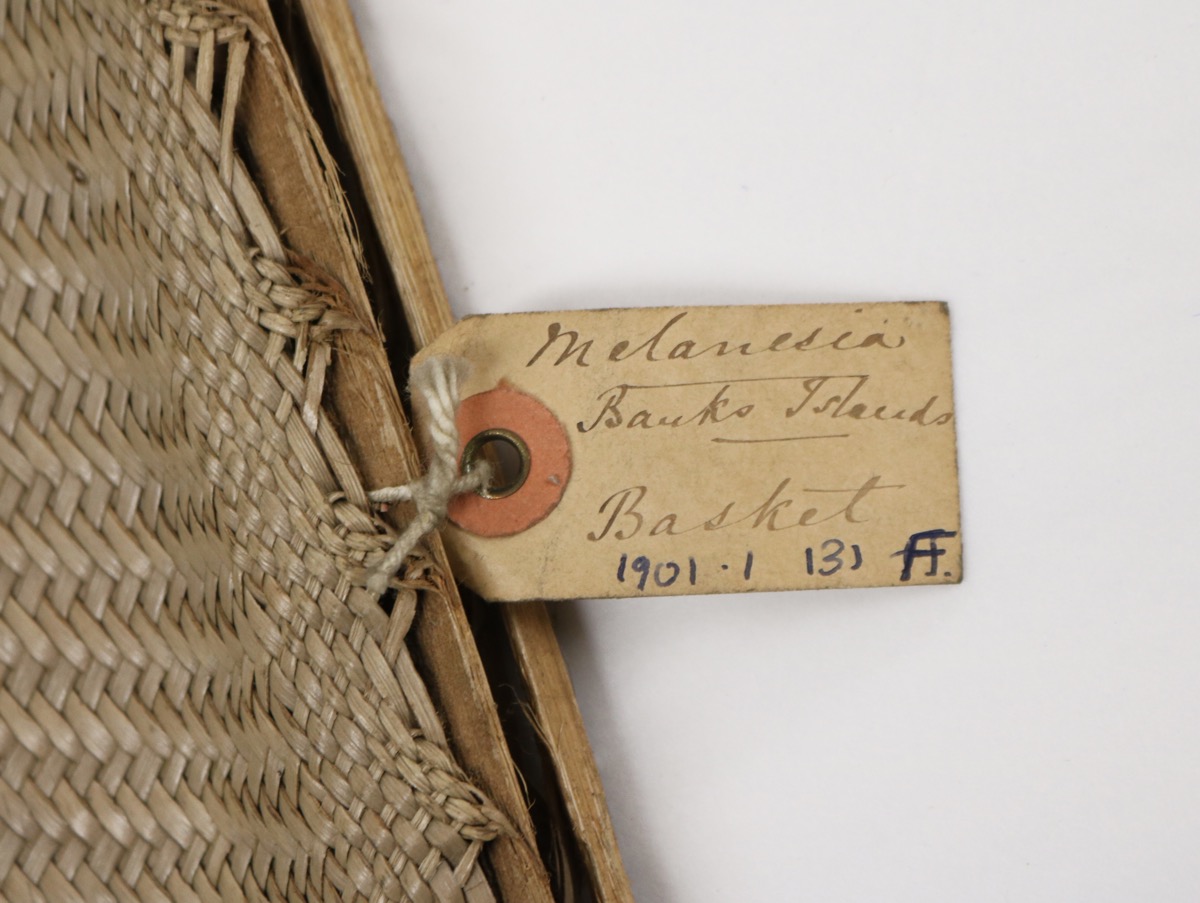 Melanesia
Banks Islands
Basket
1901.1 131